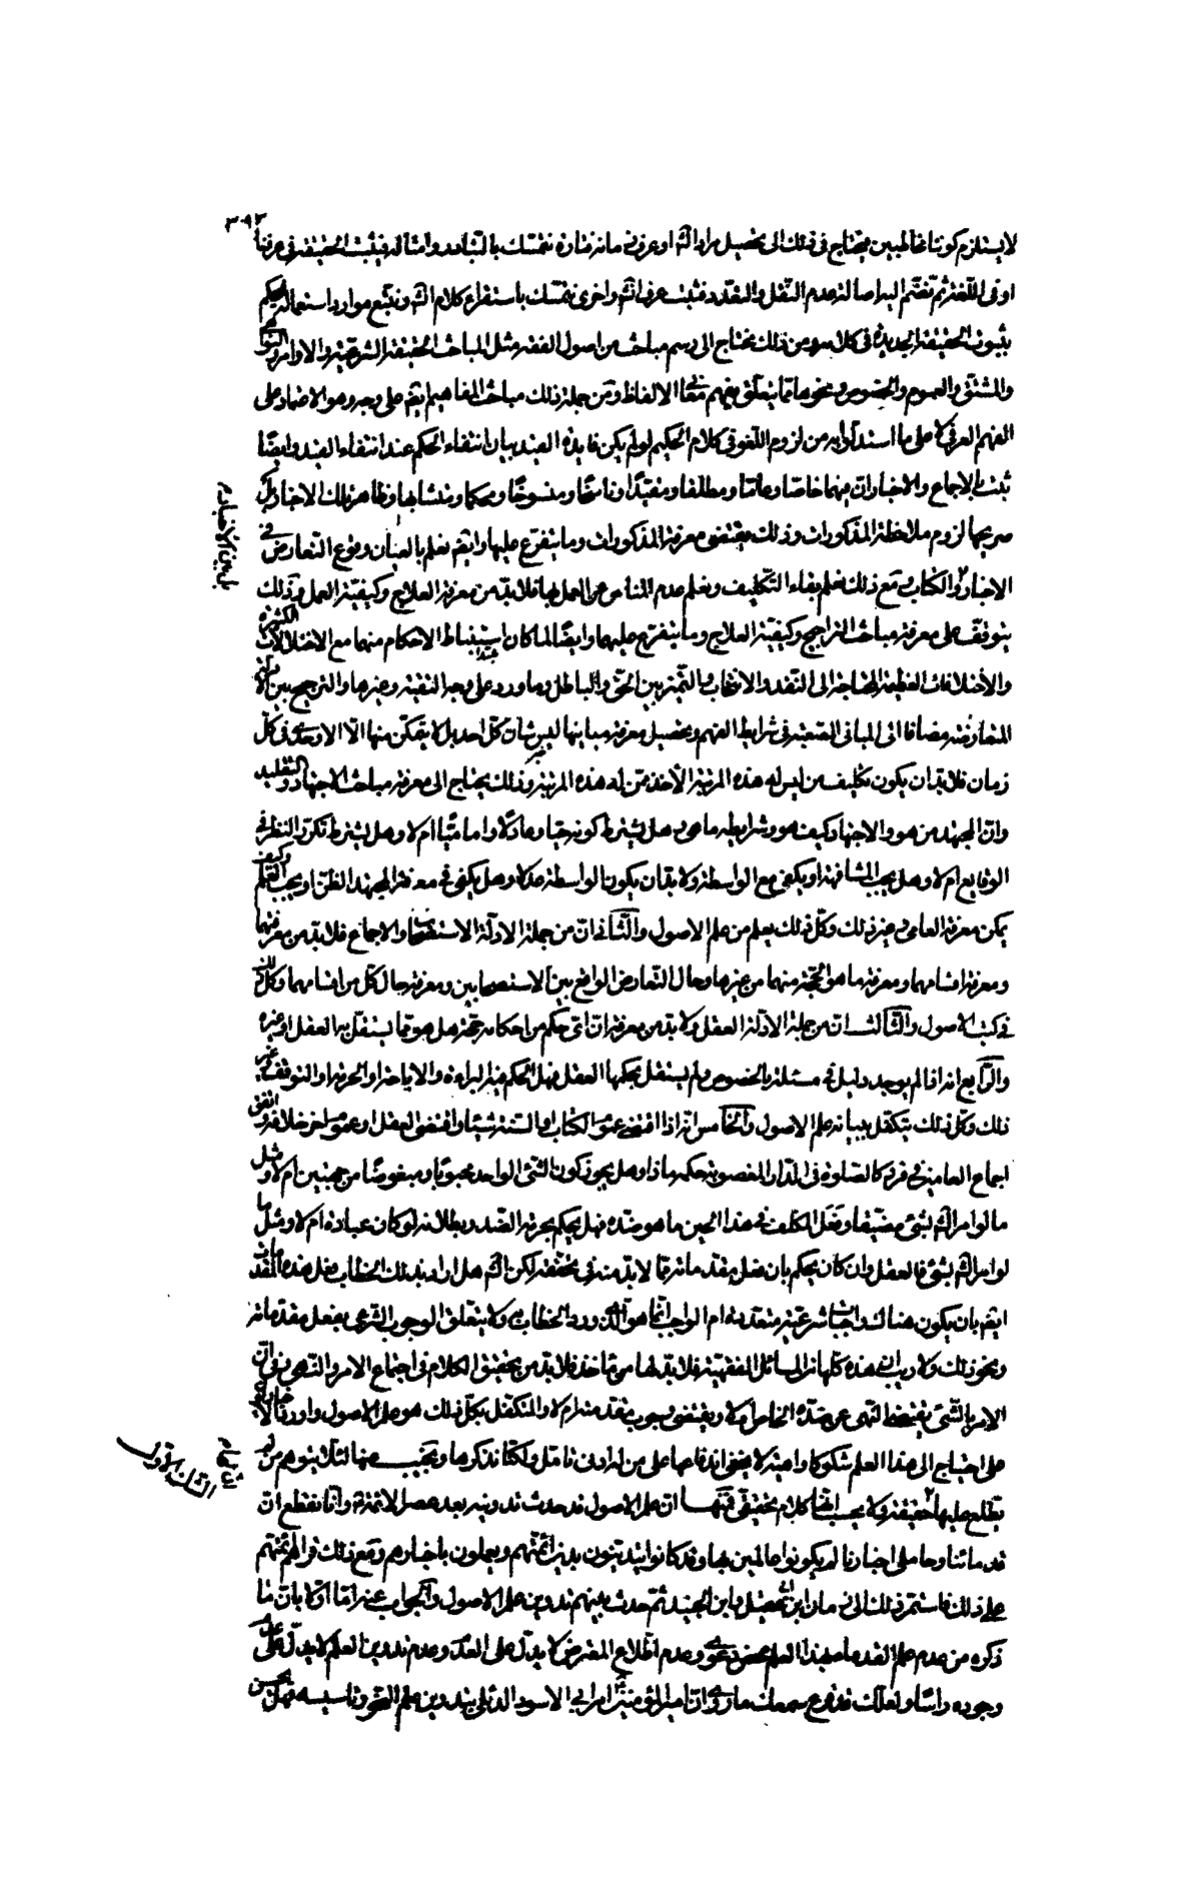 ٣٠٩٣
لا يستلزم كوننا مخاطبين يحتاج فى ذلك الى تحصيل مراد الش‍ او عرفه فى زمانه فتارة نتمسك بالتبادر وامثاله فيثبت الحقيقة فى عرفنا
او فى اللغة ثم نضم اليه اصالة عدم النقل والتعدد فيثبت عرف الش‍ واخرى نتمسك باستقراء كلام الش‍ ونتبع موارد استعماله فيحكم
بثبوت الحقيقة الجديدة فى كلامه ومن ذلك نحتاج الى رسم مباحث من اصول الفقه مثل المباحث الحقيقة الشرعية والاوامر والنواهى
والمشتق والعموم والخصوص ونحوها مما يتعلق بفهم معانى الالفاظ ومن جملة ذلك مباحث المفاهيم ايض على وجه وهو الاعتماد على
الفهم العرفى لا على ما استدلوا به من لزوم اللغو فى كلام الحكيم لو لم يكن فايدة القيد بيان انتفاء الحكم عند انتفاء القيد وايضًا
ثبت بالاجماع والاخبار ان فيهما خاصا وعاما ومطلقا ومقيدًا وناسخًا ومنسوخًا ومحكما ومتشابها وظاهر تلك الاخبار بل
بل بين الاخبار
صريحها لزوم ملاحظة المذكورات وذلك يقتضى معرفة المذكورات وما يتفرع عليها وايض نعلم بالعيان وقوع التعارض فى
الاخبار والكتاب ومع ذلك نعلم بقاء التكليف ونعلم عدم المناص عن العمل بها فلا بد من معرفة العلاج وكيفية العمل وذلك
يتوقف على معرفة مباحث التراجيح وكيفية العلاج وما يتفرع عليهما وايضًا لما كان استنباط الاحكام منهما مع الاختلالات الكثيرة
والاختلافات العظيمة المحتاجة الى النقد والانتخاب والتمييز بين الحق والباطل وما ورد على وجه التقية وغيرها والترجيح بين
المتعارضة مضافا الى المبانى الصعبة فى شرايط الفهم وتحصيل معرفة مباينها ليس شان كل احد بل لا يتمكن منها الا الاوحدى فى كل
زمان فلا بد ان يكون تكليف من ليس له هذه المرتبة الاخذ ممن له هذه المرتبة وذلك يحتاج الى معرفة مباحث الاجتهاد والتقليد
وان المجتهد من هو والاجتهاد كيف هو وشرايطه ما هى وهل يشترط كونه حيّا وعادلا واماميًّا ام لا وهل يشترط تكرر النظر فى
الوقايع ام لا وهل يجب المشافهة او يكفى مع الواسطة ولا بد ان يكون الواسطة عدلا وهل يكفى فى معرفة المجتهد الظن او يجب العلم وكيف
يمكن معرفة العامى وغير ذلك وكل ذلك يعلم من علم الاصول والثانى ان من جملة الادلة الاستصحاب والاجماع فلا بد من معرفتهما
ومعرفة اقسامهما ومعرفة ما هو الحجة منهما من غيرها وحال التعارض الواقع بين الاستصحابين ومعرفة حال كل من اقسامهما وكل ذلك
فى كتب الاصول والثالث ان من جملة الادلة العقل ولا بد من معرفة ان اى حكم من احكامه حجة هل هو مما يستقل به العقل او غيره
والرابع انه اذا لم يوجد دليل فى مسئلة بالخصوص ولم يستقل بحكمها العقل فهل الحكم فيه البراءة والاباحة او الحرمة او التوقف وغير
ذلك وكل ذلك يتكفل ببيانه علم الاصول والخامس انه اذا اقتضى عموم الكتاب والسنة شيئا واقتضى العقل او عموم اخر خلافه واتفق
اجتماع العامين فى فرد كالصلوة فى الدار المغصوبة حكمه ماذا وهل يجوز كون الشئ الواحد محبوبًا ومبغوضًا من جهتين ام لا ومثل
ما لو امر الش‍ بشئ مضيقا وفعل المكلف فى هذا الحين ما هو ضده فهل يحكم بحرمة الضد وبطلانه لو كان عبادة ام لا ومثل ما
لو امر الش‍ بشئ فالعقل وان كان يحكم بان فعل مقدماته مما لا بد منه فى تحققه لكن الش‍ هل اراد بذلك الخطاب فعل هذه المقدمات
ايض بان يكون هناك واجبات شرعية متعددة ام الواجب انما هو الذى ورد الخطاب به ولا يتعلق الوجوب الشرعى بفعل مقدماته
ونحو ذلك ولا ريب ان هذه كلها من المسائل الفقهية فلا بد لها من مأخذ فلا بد من تحقيق الكلام فى اجتماع الامر والنهى وفى ان
الامر بالشئ يقتضى النهى عن ضده الخاص ام لا ويقتضى وجوب مقدمته ام لا والمتكفل بكل ذلك هو علم الاصول واورد الاخبارية
على احتياج الى هذا العلم شكوكا واهية لا يخفى اندفاعها على من له ادنى تامل ولكنا نذكرها ونجيب عنها لئلا يتوهم من لم
يطلع عليها حقيقة ولا يحسب انها كلام تحقيقى فمنها ان علم الاصول قد حدث تدوينه بعد عصر الائمة وانا نقطع ان
قدمائنا وحاملى اخبارنا لم يكونوا عالمين بها وقد كانوا يتدينون بدين ائمتهم ويعملون باخبارهم ومع ذلك قررهم ائمتهم
على ذلك فاستمر ذلك الى زمان ابن ابى عقيل وابن الجنيد ثم حدث بينهم تدوين علم الاصول والجواب عنه اما اولا بان ما
ذكره من عدم علم القدماء بهذا العلم محض دعوى وعدم اطلاع المعترض لا يدل على العدم وعدم تدوين العلم لا يدل على عدم
وجوده راسًا ولعلك قد قرع سمعك ما روى ان امير المؤمنين امر ابى الاسود الدئلى بتدوين علم النحو وتاسيسه فهل يحسن